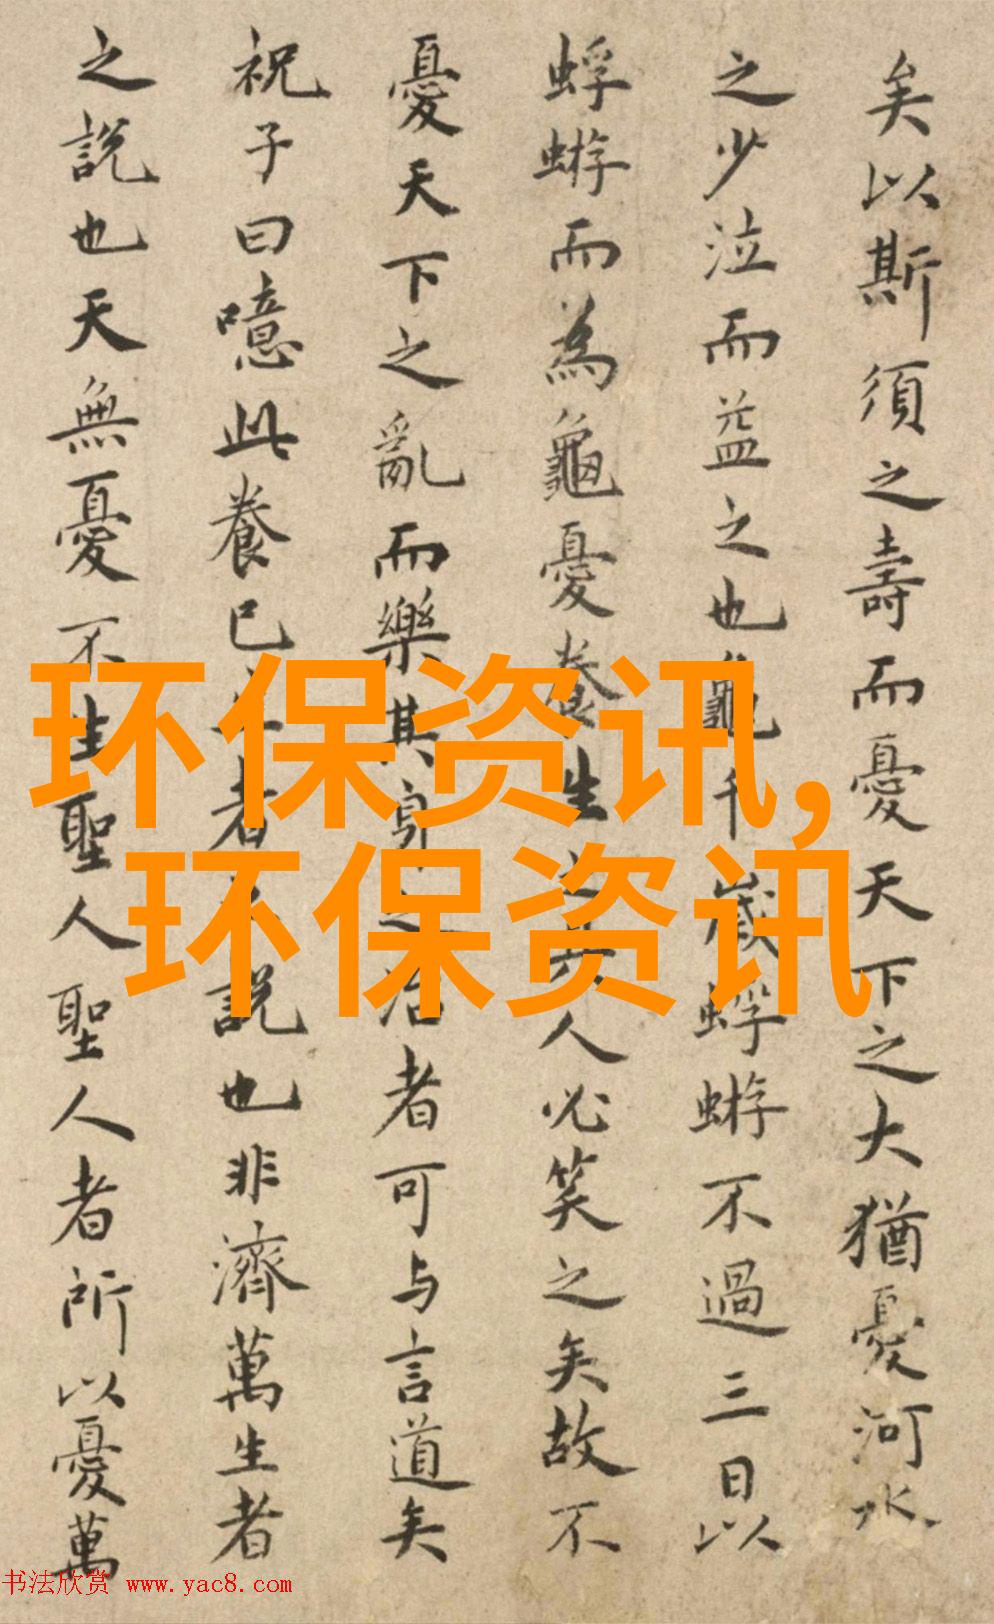 矣以斯須之壽而憂天下之大猶憂河水
之少泣而益之也龜千歲蜉蝣不過三日以
蜉蝣而為龜憂養生之具人必笑之矣故不
憂天下之亂而樂其身之治者可与言道矣
祝子曰噫此養已者之說也非濟萬生者
之說也天無憂不生聖人聖人者所以憂萬
环保资讯,
环保资讯
书法欣赏 www.yac8.com